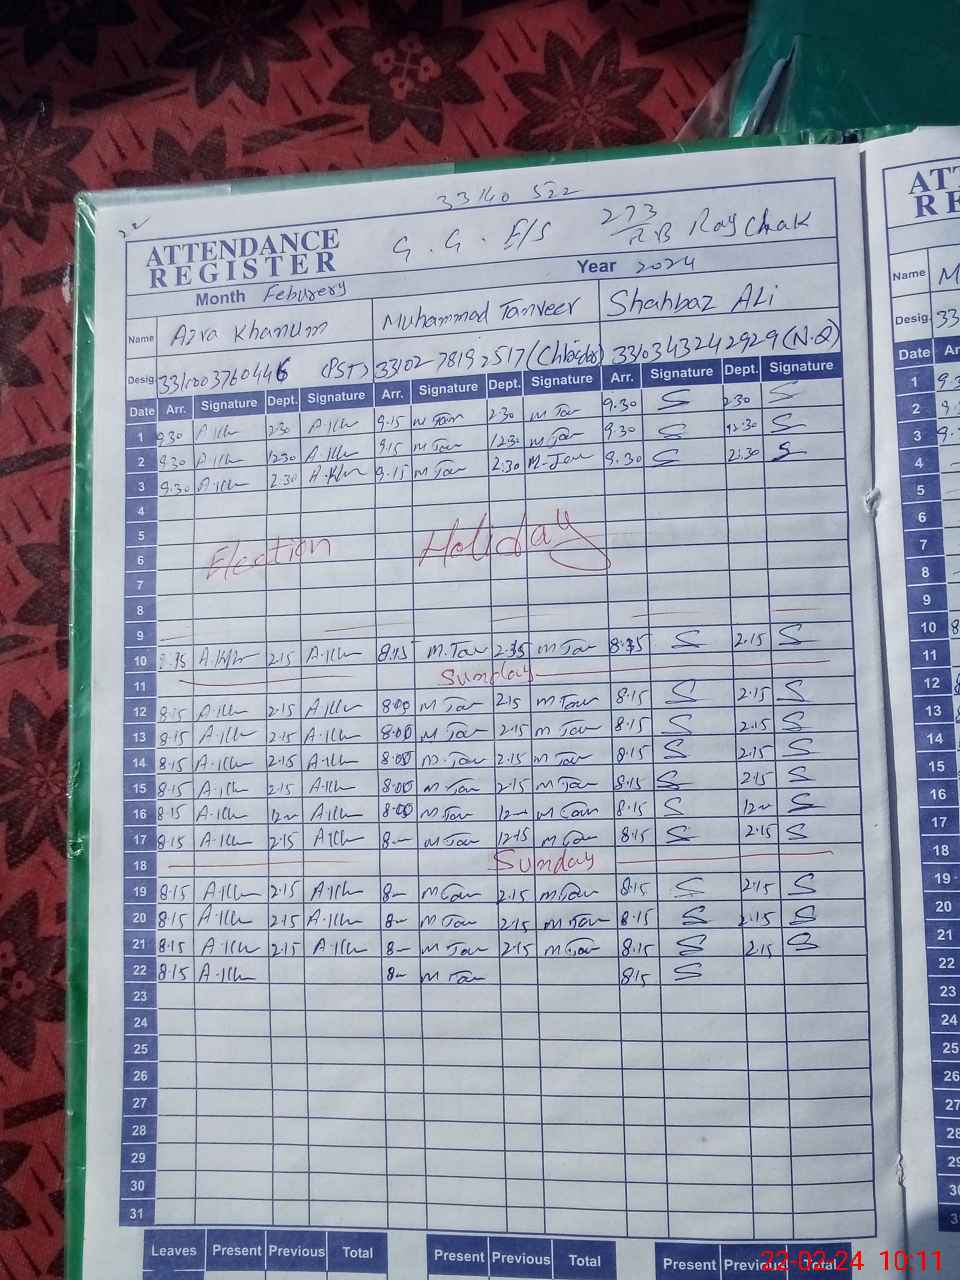 33140 522
22
ATTENDANCE REGISTER
G. G. E/S 273/RB Ray Chak
Month Feburery Year 2024
Name Azra Khanum Muhammad Tanveer Shahbaz ALi
Desig. (PST) 33102-78192517 3310343242929 (N.Q)
Date Arr. Signature Dept. Signature Arr. Signature Dept. Signature Arr. Signature Dept. Signature
1 9.30 A.Kh 2.30 A.Kh 9.15 m Tan 2.30 m Tan 9.30 S 2.30 S
2 9.30 A.Kh 12.30 A.Kh 9.15 m Tan 12.30 m Tan 9.30 S 12.30 S
3 9.30 A.Kh 2.30 A.Kh 9.15 m Tan 2.30 m.Tan 9.30 S 2.30 S
4
5
6 Election Holiday
7
8
9
10 A.Kh 2.15 A.Kh 8.15 M.Tan m Tan S 2.15 S
11 Sunday
12 8.15 A.Kh 2.15 A.Kh 8.00 m Tan 2.15 m Tan 8.15 S 2.15 S
13 8.15 A.Kh 2.15 A.Kh 8.00 m Tan 2.15 m Tan 8.15 S 2.15 S
14 8.15 A.Kh 2.15 A.Kh 8.00 m.Tan 2.15 m Tan 8.15 S 2.15 S
15 8.15 A.Kh 2.15 A.Kh 8.00 m Tan 2.15 m Tan 8.15 S 2.15 S
16 8.15 A.Kh 12- A.Kh 8.00 m Tan 12- m Tan 8.15 S 12- S
17 8.15 A.Kh 2.15 A.Kh 8- m Tan 12.15 m Tan 8.15 S 2.15 S
18 Sunday
19 8.15 A.Kh 2.15 A.Kh 8- m Tan 2.15 m Tan 8.15 S 2.15 S
20 8.15 A.Kh 2.15 A.Kh 8- m Tan 2.15 m Tan 8.15 S 2.15 S
21 8.15 A.Kh 2.15 A.Kh 8- m Tan 2.15 m Tan 8.15 S 2.15 S
22 8.15 A.Kh 8- m Tan 8.15 S
23
24
25
26
27
28
29
30
31
Leaves Present Previous Total Present Previous Total Present Previous Total
AT
RE
Name M
Desig. 33
Date Ar
1 9.3
2 9.
3 9.
4
5
6
7
8
9
10 8
11
12
13
14
15
16
17
18
19
20
21
22
23
24
25
26
27
28
29
30
22-02-24 10:11